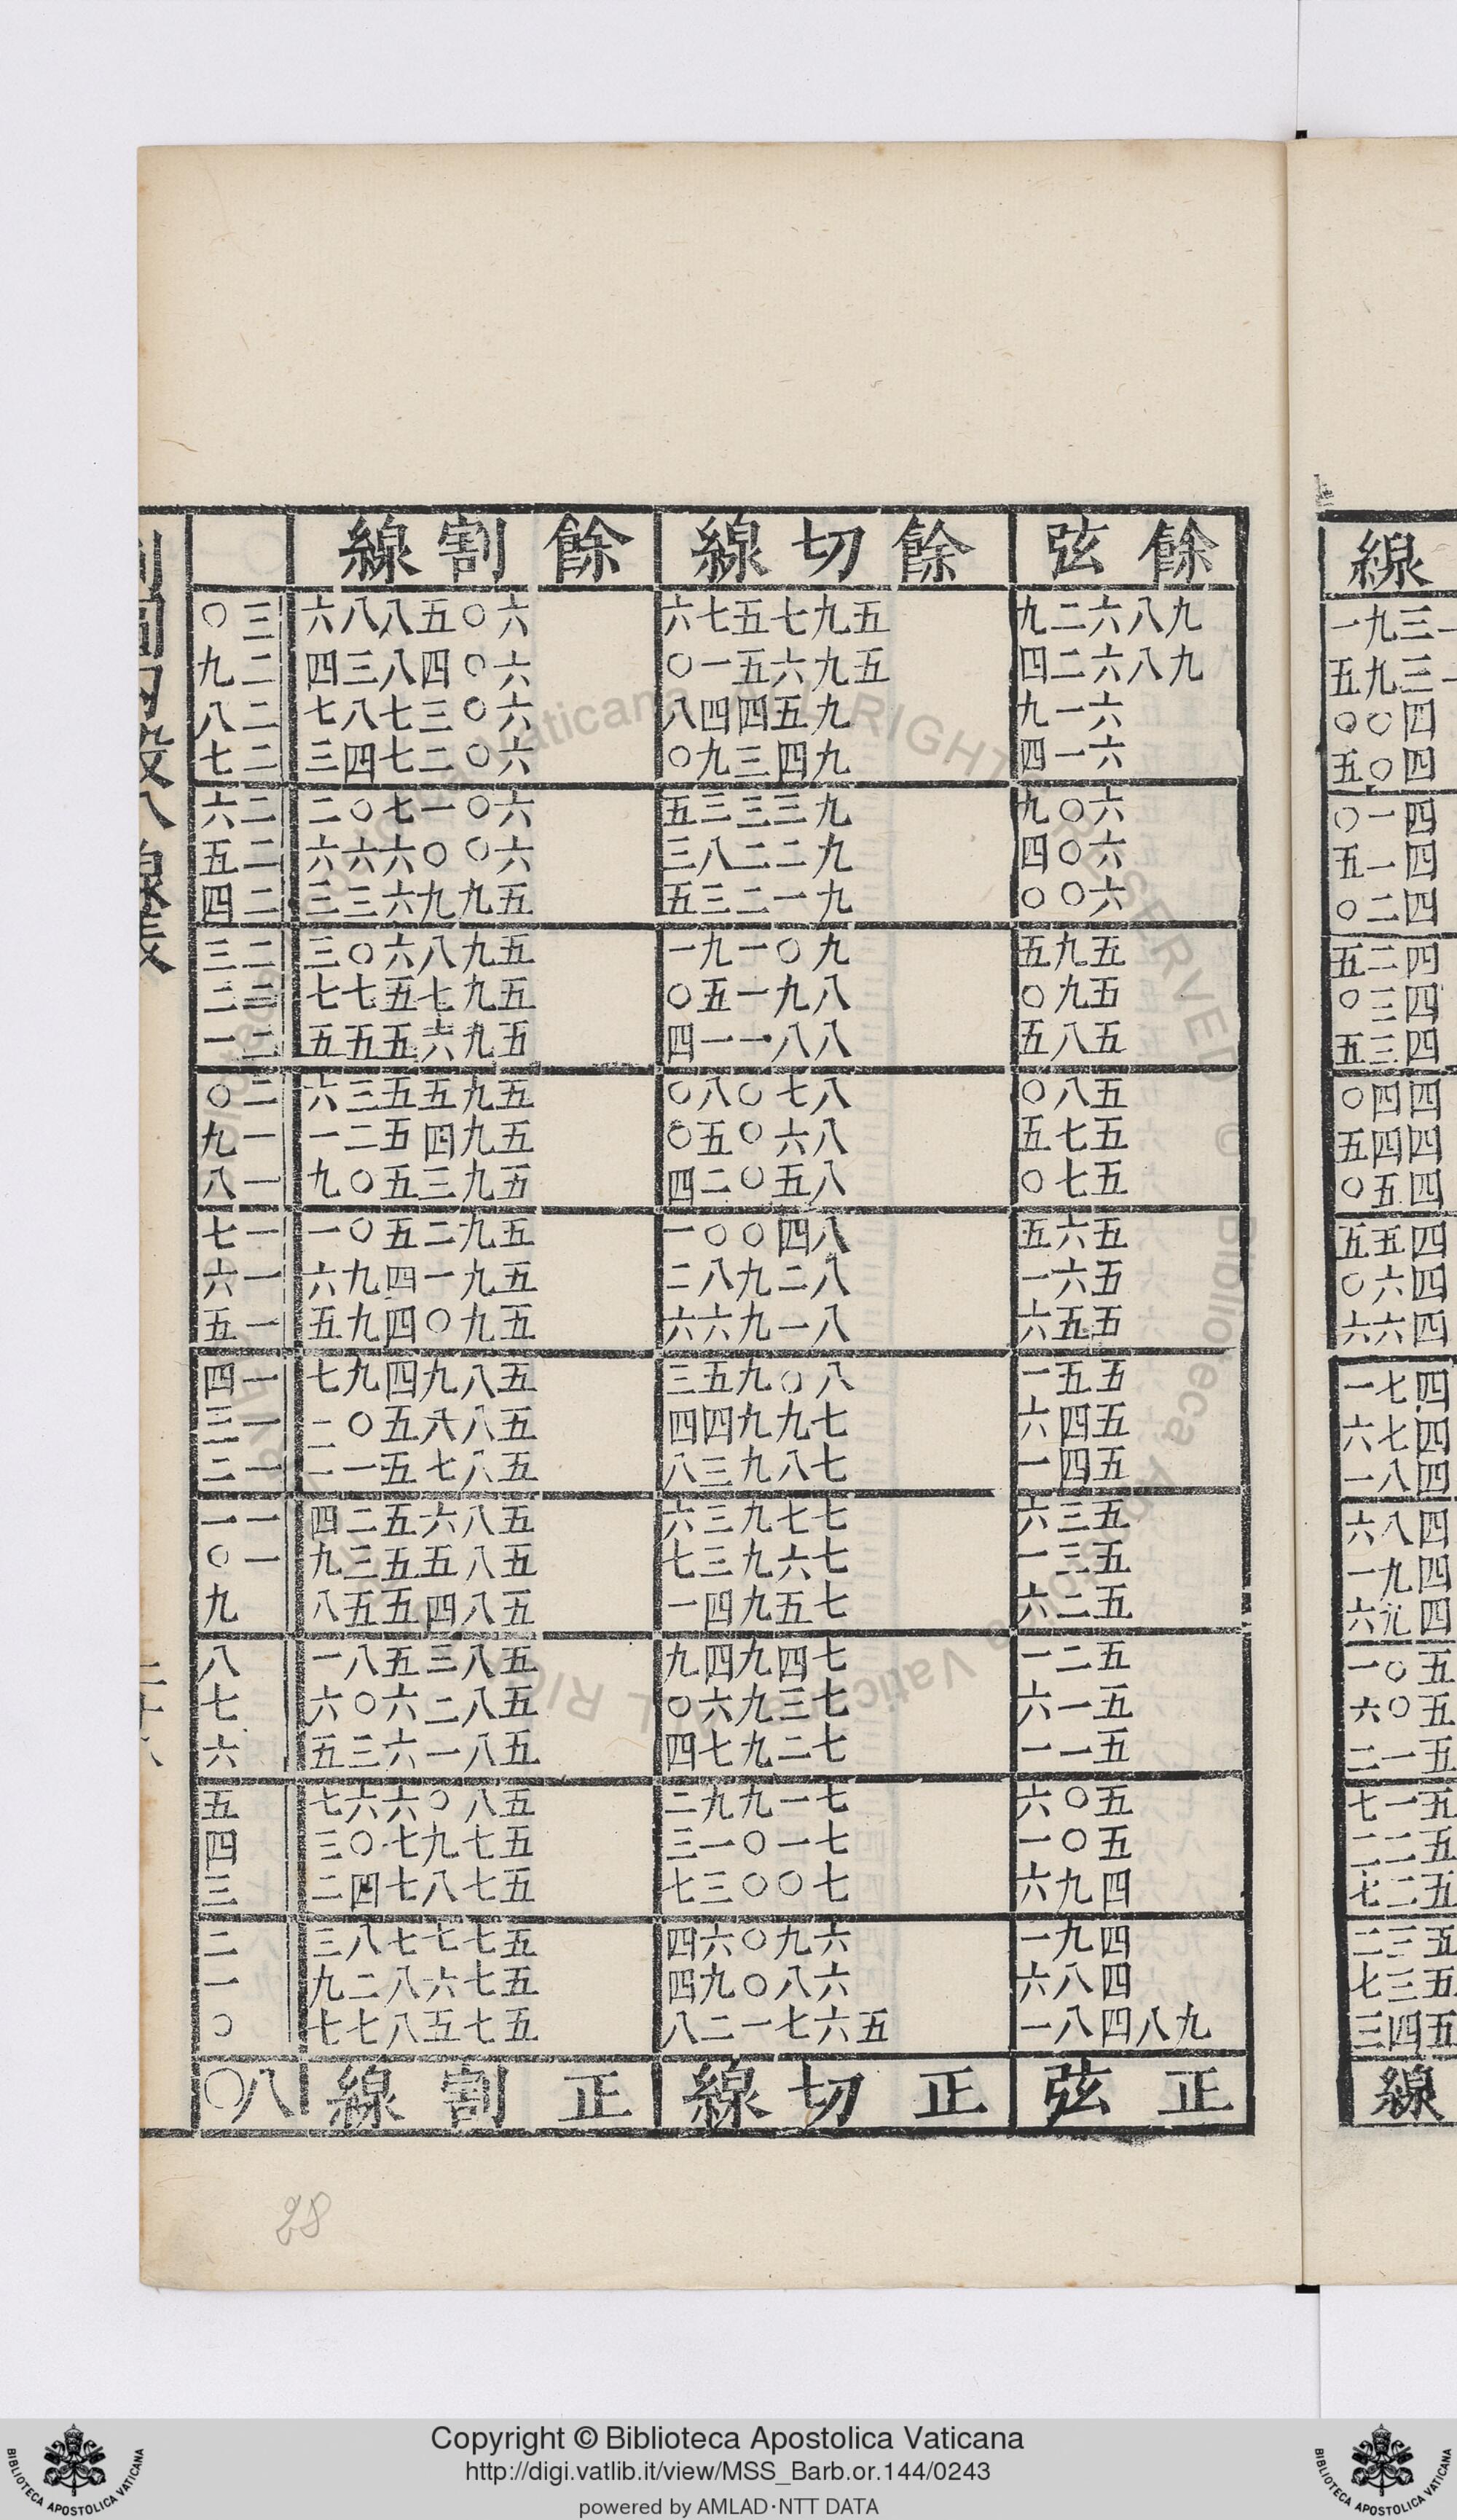 線
三九一
三九五
四〇〇
四〇五
四一〇
四一五
四二〇
四二五
四三〇
四三五
四四〇
四四五
四五〇
四五五
四六〇
四六六
四七一
四七六
四八一
四八六
四九一
四九六
五〇一
五〇六
五一二
五一七
五二二
五二七
五三二
五三七
五四三
線
餘弦 餘切線 餘割線
九八六二九 五九七五七六 六〇五八八六 三〇
九八六二四 五九六五一〇 六〇四八三四 二九
六一九 九五四四八 六〇三七八七 二八
六一四 九四三九〇 六〇二七四三 二七
六〇九 九三三三五 六〇一七〇二 二六
六〇四 九二二八三 六〇〇六六六 二五
六〇〇 九一二三五 五九九六三三 二四
五九五 九〇一九一 五九八六〇三 二三
五九〇 八九一五〇 五九七五七七 二二
五八五 八八一一四 五九六五五五 二一
五八〇 八七〇八〇 五九五五三六 二〇
五七五 八六〇五〇 五九四五二一 一九
五七〇 八五〇二四 五九三五〇九 一八
五六五 八四〇〇一 五九二五〇一 一七
五六一 八二九八二 五九一四九六 一六
五五六 八一九六六 五九〇四九五 一五
五五一 八〇九五三 五八九四九七 一四
五四六 七九九四四 五八八五〇二 一三
五四一 七八九三八 五八七五一二 一二
五三六 七七九三六 五八六五二四 一一
五三一 七六九三七 五八五五三九 一〇
五二六 七五九四一 五八四五五八 九
五二一 七四九四九 五八三五八一 八
五一六 七三九六〇 五八二六〇六 七
五一一 七二九七四 五八一六三五 六
五〇六 七一九九二 五八〇六六七 五
五〇一 七一〇一三 五七九七〇三 四
四九六 七〇〇三七 五七八七四二 三
四九一 六九〇六四 五七七七八三 二
四八六 六八〇九四 五七六八二九 一
九八四八一 五六七一二八 五七五八七七 〇
正弦 正切線 正割線 八〇
28
Copyright © Biblioteca Apostolica Vaticana
http://digi.vatlib.it/view/MSS_Barb.or.144/0243
powered by AMLAD·NTT DATA
BIBLIOTECA APOSTOLICA VATICANA
BIBLIOTECA APOSTOLICA VATICANA